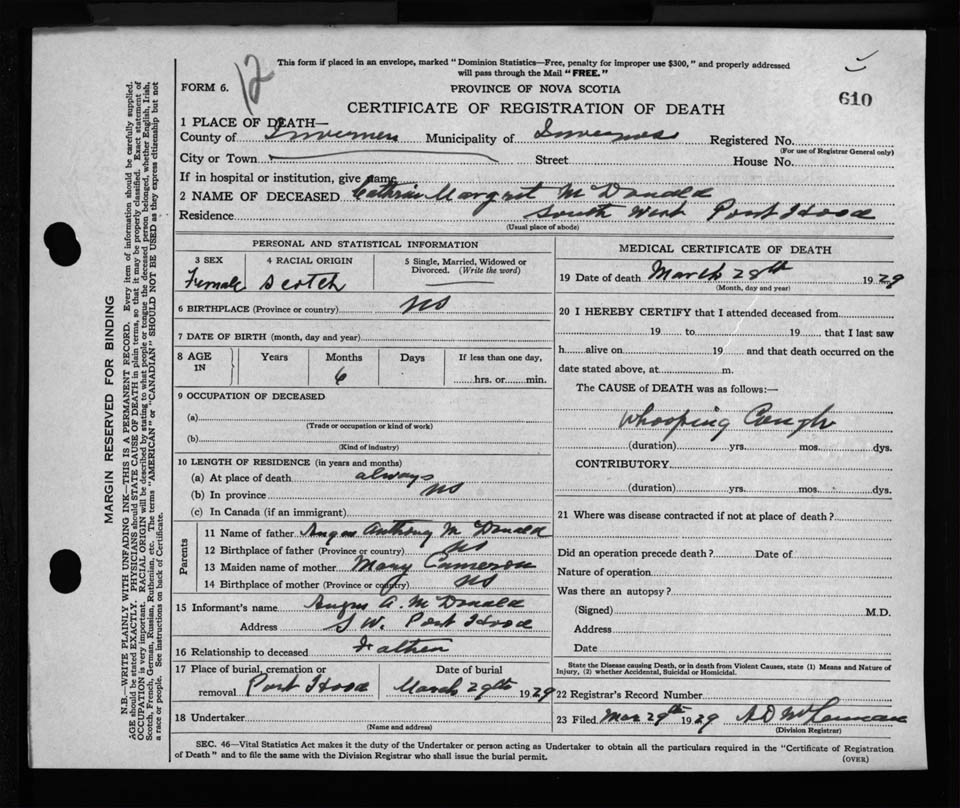 12
This form if placed in an envelope, marked "Dominion Statistics—Free, penalty for improper use $300," and properly addressed
will pass through the Mail "FREE."
FORM 6.
PROVINCE OF NOVA SCOTIA
610
CERTIFICATE OF REGISTRATION OF DEATH
1 PLACE OF DEATH—
County of Inverness Municipality of Inverness Registered No.
(For use of Registrar General only)
City or Town Street House No.
If in hospital or institution, give name
2 NAME OF DECEASED Cathrin Margret McDonald
Residence South West Port Hood
(Usual place of abode)
PERSONAL AND STATISTICAL INFORMATION
3 SEX 4 RACIAL ORIGIN 5 Single, Married, Widowed or
Divorced. (Write the word)
Female Scotch
6 BIRTHPLACE (Province or country) NS
7 DATE OF BIRTH (month, day and year)
8 AGE IN Years Months Days If less than one day,
6 hrs. or min.
9 OCCUPATION OF DECEASED
(a)
(Trade or occupation or kind of work)
(b)
(Kind of industry)
10 LENGTH OF RESIDENCE (in years and months)
(a) At place of death always
(b) In province NS
(c) In Canada (if an immigrant)
Parents
11 Name of father Angus Anthony McDonald
12 Birthplace of father (Province or country) NS
13 Maiden name of mother Mary Cameron
14 Birthplace of mother (Province or country) NS
15 Informant's name Angus A. McDonald
Address S W. Port Hood
16 Relationship to deceased Father
17 Place of burial, cremation or Date of burial
removal Port Hood March 29th 1929
18 Undertaker
(Name and address)
MEDICAL CERTIFICATE OF DEATH
19 Date of death March 28th 1929
(Month, day and year)
20 I HEREBY CERTIFY that I attended deceased from
19 to 19 that I last saw
h alive on 19 and that death occurred on the
date stated above, at m.
The CAUSE of DEATH was as follows:—
Whooping Cough
(duration) yrs. mos. dys.
CONTRIBUTORY
(duration) yrs. mos. dys.
21 Where was disease contracted if not at place of death?
Did an operation precede death? Date of
Nature of operation
Was there an autopsy?
(Signed) M.D.
Address
Date
State the Disease causing Death, or in death from Violent Causes, state (1) Means and Nature of
Injury, (2) whether Accidental, Suicidal or Homicidal.
22 Registrar's Record Number
23 Filed Mar 29th 1929 A D
(Division Registrar)
SEC. 46—Vital Statistics Act makes it the duty of the Undertaker or person acting as Undertaker to obtain all the particulars required in the "Certificate of Registration
of Death" and to file the same with the Division Registrar who shall issue the burial permit.
(OVER)
MARGIN RESERVED FOR BINDING
N.B.—WRITE PLAINLY WITH UNFADING INK—THIS IS A PERMANENT RECORD. Every item of information should be carefully supplied.
AGE should be stated EXACTLY. PHYSICIANS should STATE CAUSE OF DEATH in plain terms, so that it may be properly classified. Exact statement of
OCCUPATION is very important. RACIAL ORIGIN will be described by stating to what people or tongue the deceased person belonged, whether English, Irish,
Scotch, French, German, Russian, Ruthenian, etc. The terms "AMERICAN" or "CANADIAN" SHOULD NOT BE USED as they express citizenship but not
a race or people. See instructions on back of Certificate.